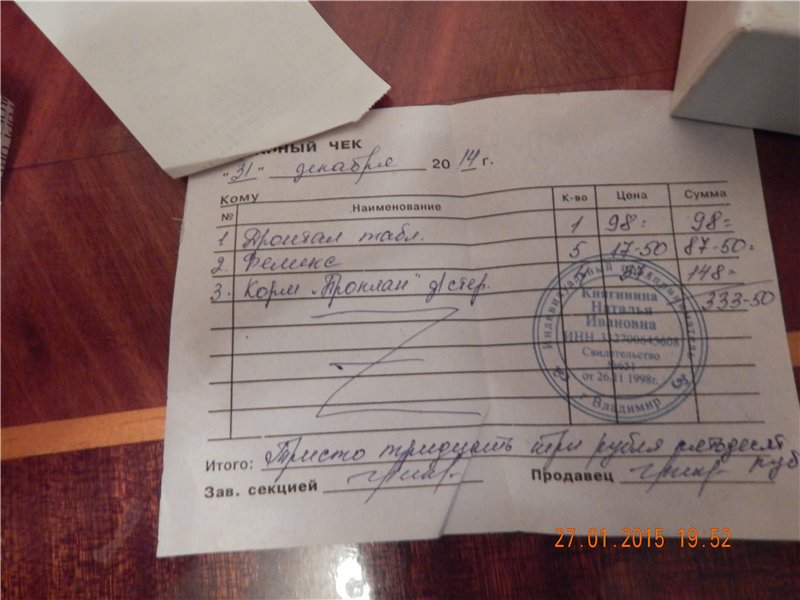 РНЫЙ ЧЕК
"31" декабря 2014 г.
Кому
№ Наименование К-во Цена Сумма
1 Дронтал табл. 1 98= 98=
2. Феликс 5 17-50 87-50=
3. Корм „Проплан" д/стер. 37 148=
333-50
Индивидуальный предприниматель
Книгинина
Наталья
Ивановна
ИНН
Свидетельство
от 26.11 1998г.
г Владимир
Итого: Тристо тридцать три рубля пятьдесят
Зав. секцией Продавец
27.01.2015 19:52